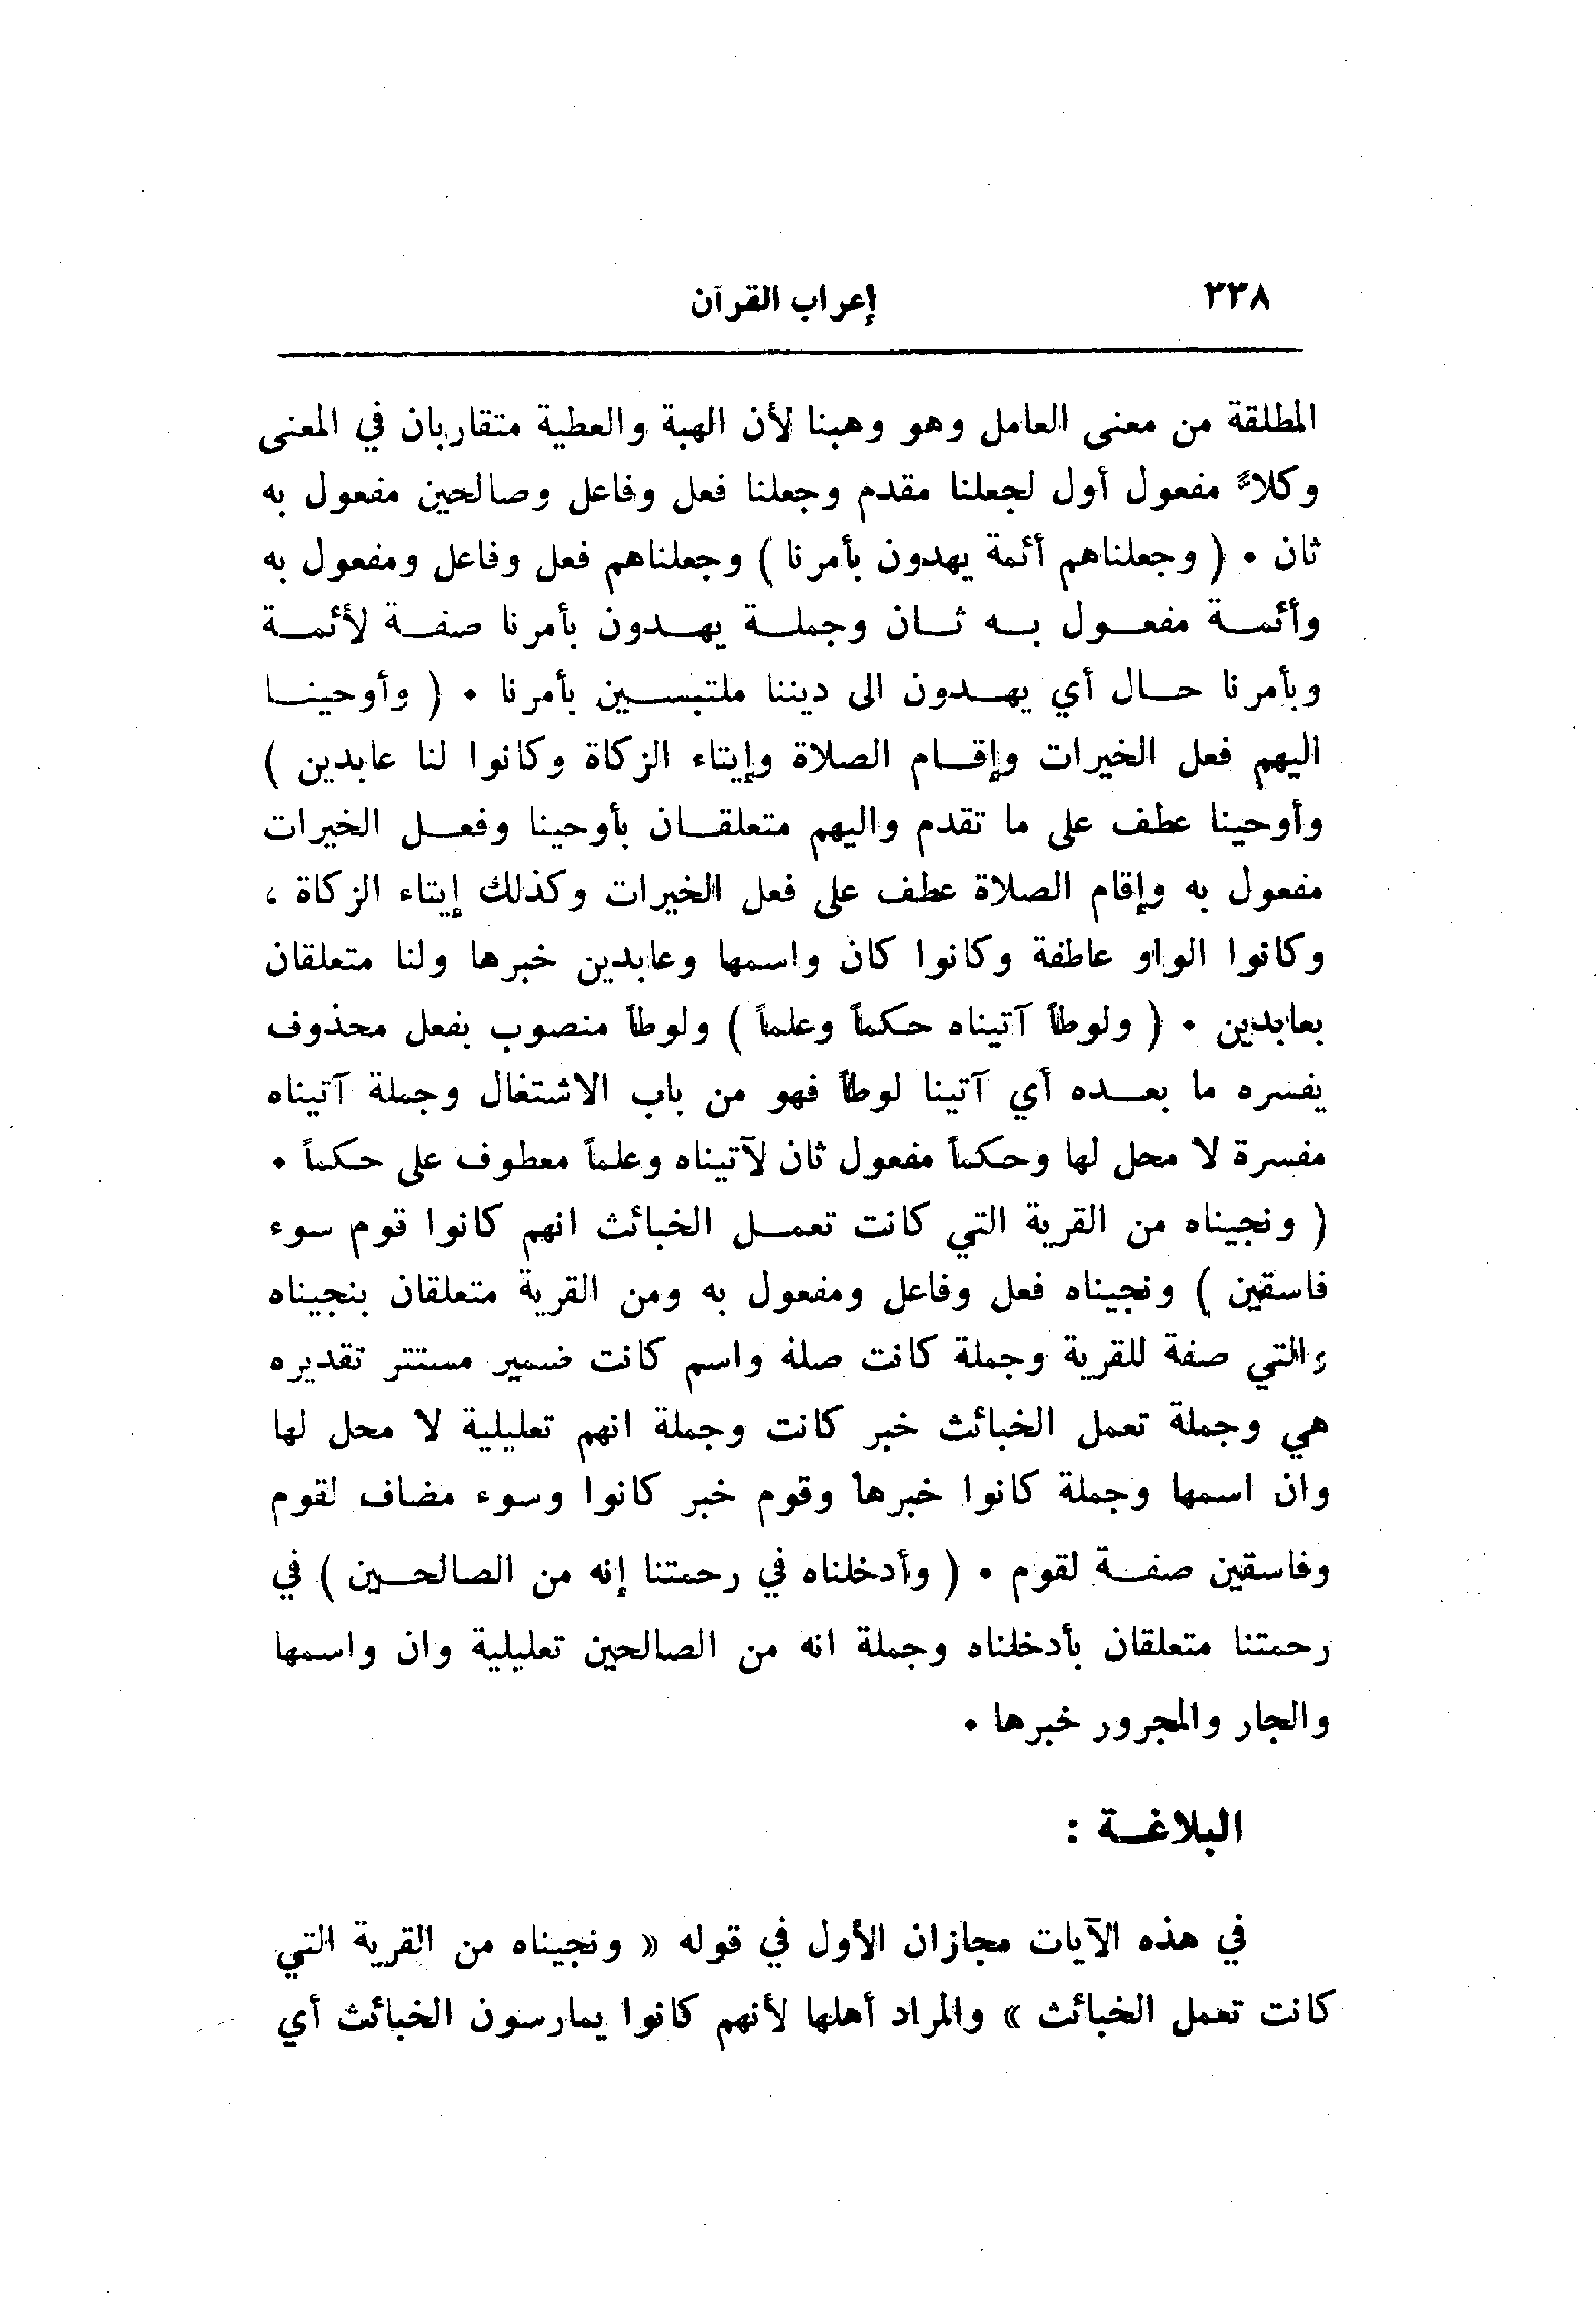 ٣٣٨ إعراب القرآن
المطلقة من معنى العامل وهو وهبنا لأن الهبة والعطية متقاربان في المعنى
وكلاً مفعول أول لجعلنا مقدم وجعلنا فعل وفاعل وصالحين مفعول به
ثان • ( وجعلناهم أئمة يهدون بأمرنا ) وجعلناهم فعل وفاعل ومفعول به
وأئمة مفعول به ثان وجملة يهدون بأمرنا صفة لأئمة
وبأمرنا حال أي يهدون الى ديننا ملتبسين بأمرنا • ( وأوحينا
اليهم فعل الخيرات وإقام الصلاة وإيتاء الزكاة وكانوا لنا عابدين )
وأوحينا عطف على ما تقدم واليهم متعلقان بأوحينا وفعل الخيرات
مفعول به وإقام الصلاة عطف على فعل الخيرات وكذلك إيتاء الزكاة ،
وكانوا الواو عاطفة وكانوا كان واسمها وعابدين خبرها ولنا متعلقان
بعابدين • ( ولوطاً آتيناه حكماً وعلماً ) ولوطاً منصوب بفعل محذوف
يفسره ما بعده أي آتينا لوطاً فهو من باب الاشتغال وجملة آتيناه
مفسرة لا محل لها وحكماً مفعول ثان لآتيناه وعلماً معطوف على حكماً •
( ونجيناه من القرية التي كانت تعمل الخبائث انهم كانوا قوم سوء
فاسقين ) ونجيناه فعل وفاعل ومفعول به ومن القرية متعلقان بنجيناه
والتي صفة للقرية وجملة كانت صلة واسم كانت ضمير مستتر تقديره
هي وجملة تعمل الخبائث خبر كانت وجملة انهم تعليلية لا محل لها
وان اسمها وجملة كانوا خبرها وقوم خبر كانوا وسوء مضاف لقوم
وفاسقين صفة لقوم • ( وأدخلناه في رحمتنا إنه من الصالحين ) في
رحمتنا متعلقان بأدخلناه وجملة انه من الصالحين تعليلية وان واسمها
والجار والمجرور خبرها •
البلاغة :
في هذه الآيات مجازان الأول في قوله « ونجيناه من القرية التي
كانت تعمل الخبائث » والمراد أهلها لأنهم كانوا يمارسون الخبائث أي